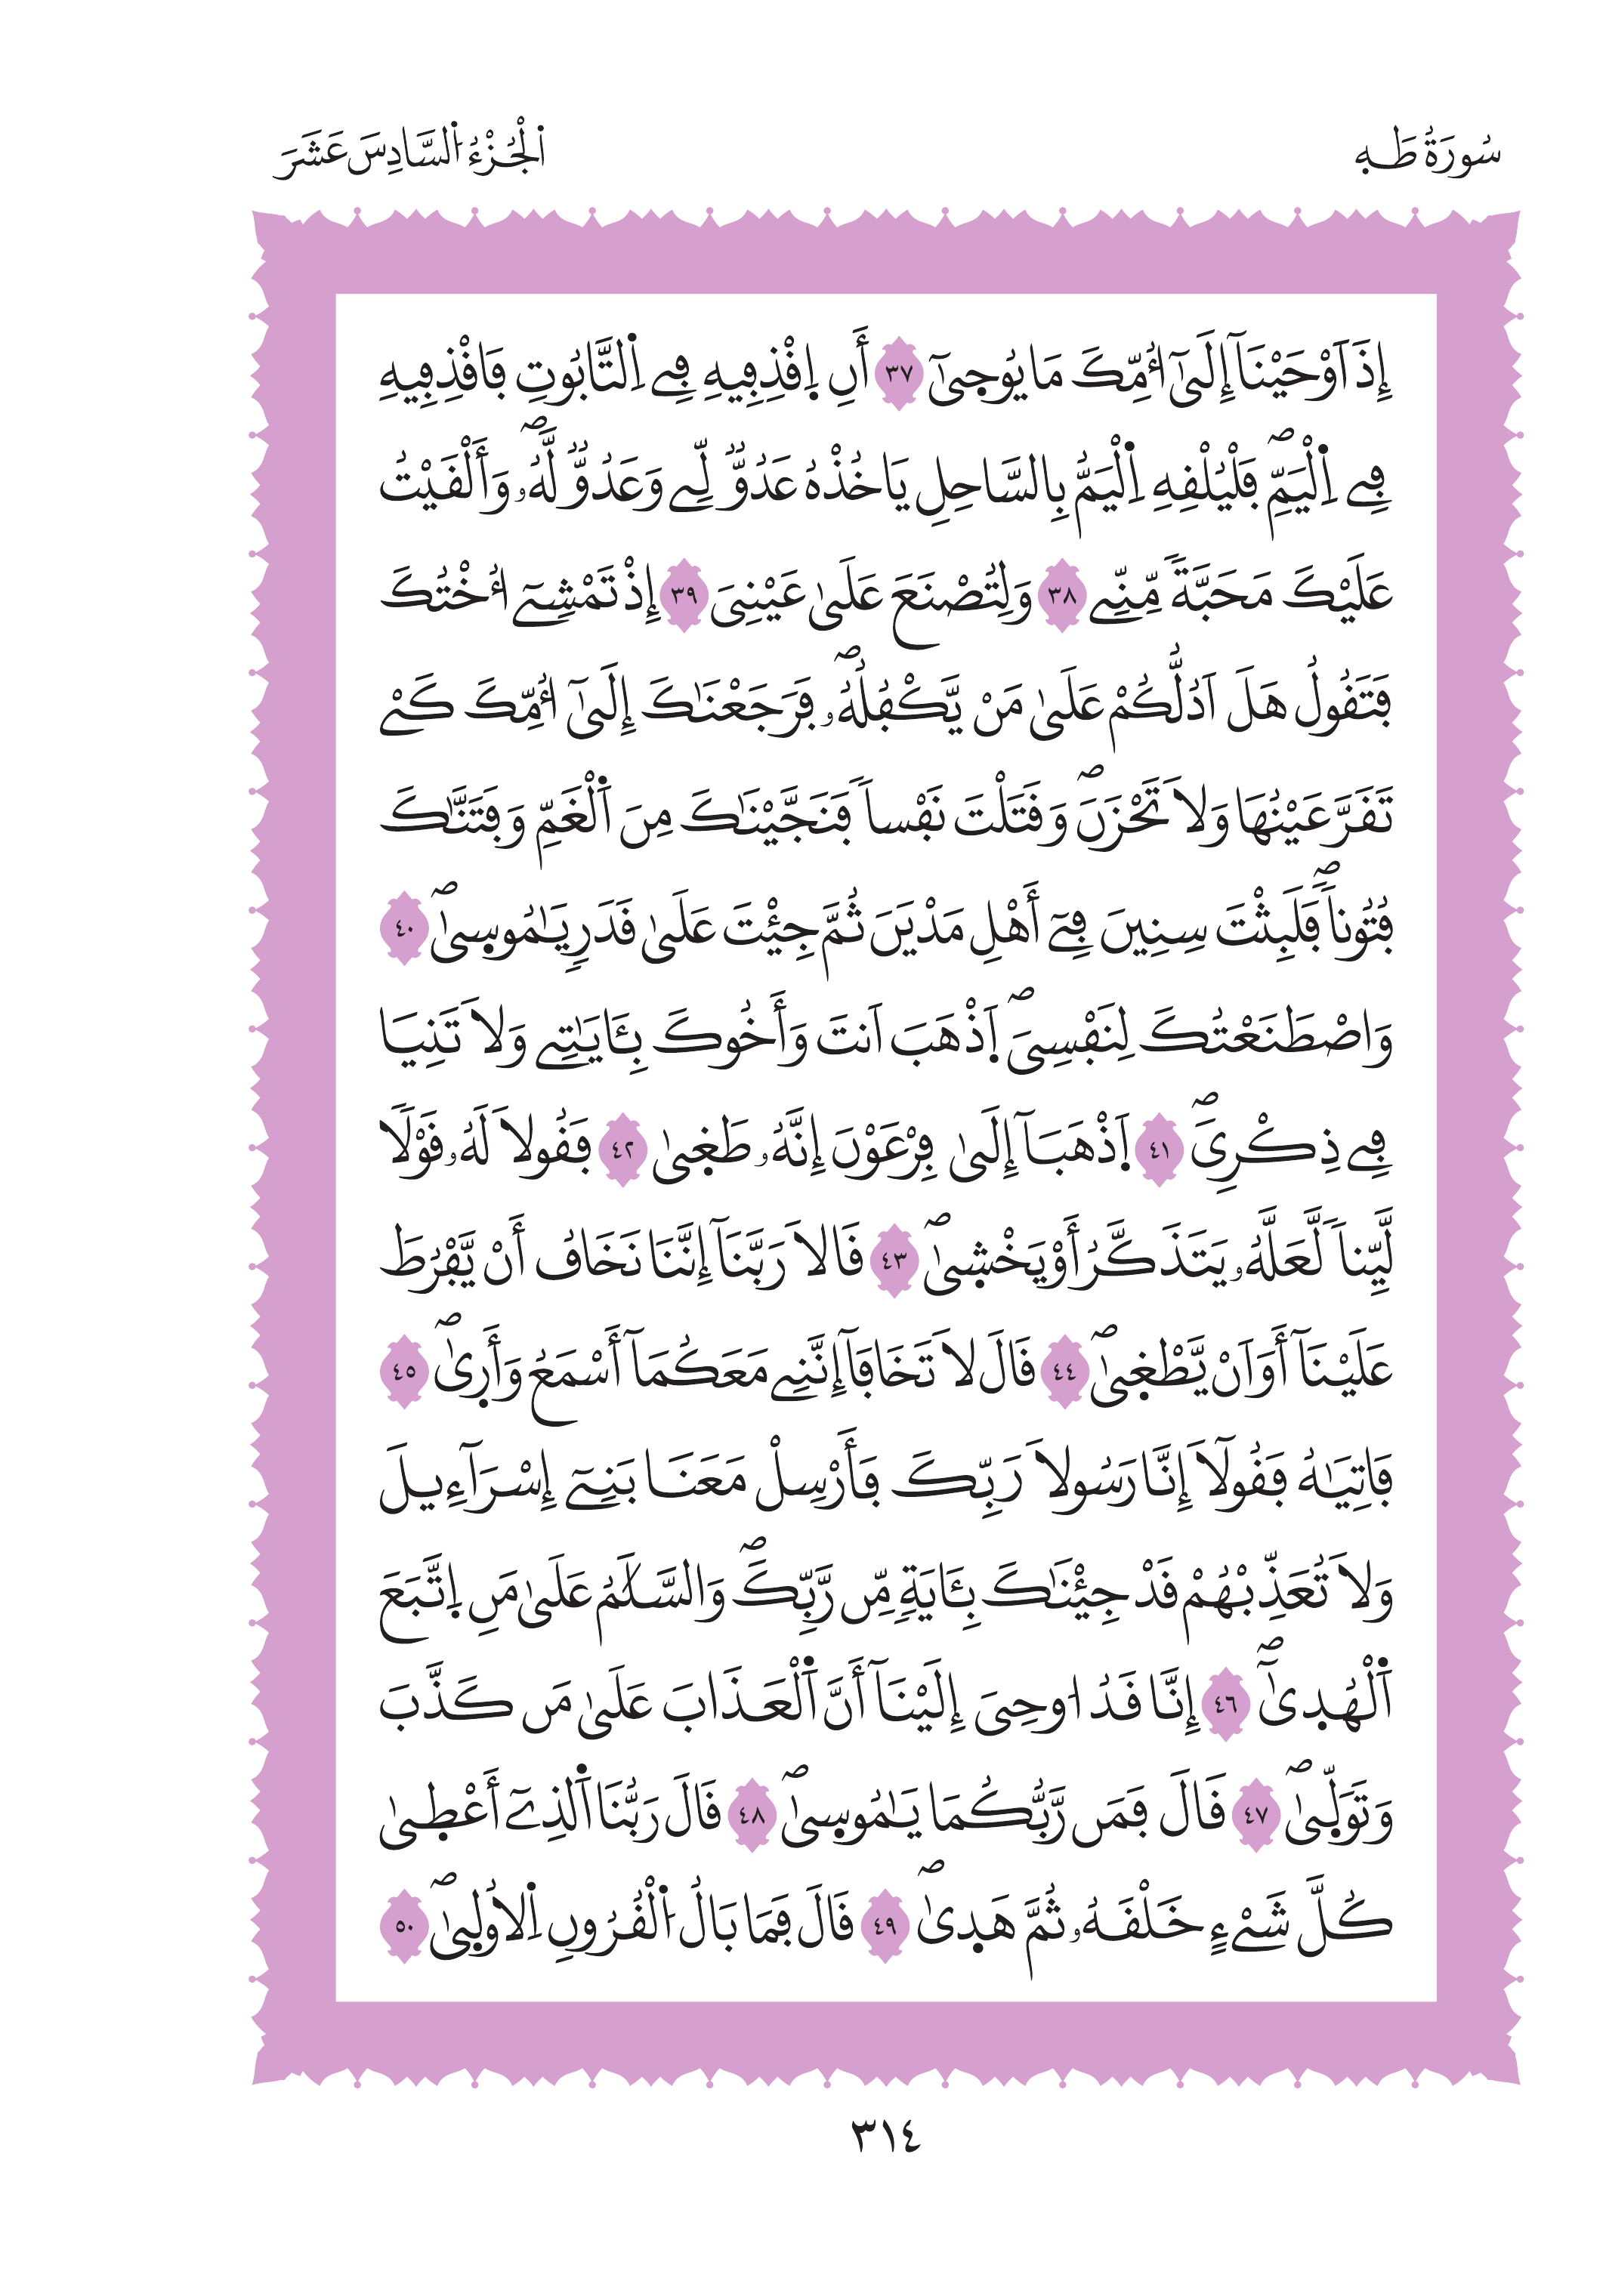 سُورَةُ طَهِ
اَلْجُزْءُ اُلسَّادِسَ عَشَرَ
إِذَ اَوْحَيْنَآ إِلَىٰٓ أُمِّكَ مَا يُوحِىٰٓ ٣٧ أَنِ اِقْذِفِيهِ فِے اِلتَّابُوتِ فَاقْذِفِيهِ
فِے اِلْيَمِّۖ فَلْيُلْقِهِ اِلْيَمُّ بِالسَّاحِلِ يَاخُذْهُ عَدُوٌّ لِّے وَعَدُوٌّ لَّهُۥۖ وَأَلْقَيْتُ
عَلَيْكَ مَحَبَّةً مِّنِّے ٣٨ وَلِتُصْنَعَ عَلَىٰ عَيْنِىَ ٣٩ إِذْ تَمْشِےٓ أُخْتُكَ
فَتَقُولُ هَلَ اَدُلُّكُمْ عَلَىٰ مَنْ يَّكْفُلُهُۥۖ فَرَجَعْنَٰكَ إِلَىٰٓ أُمِّكَ كَےْ
تَقَرَّ عَيْنُهَا وَلَا تَحْزَنَۖ وَقَتَلْتَ نَفْساً فَنَجَّيْنَٰكَ مِنَ اَلْغَمِّ وَفَتَنَّٰكَ
فُتُوناًۖ فَلَبِثْتَ سِنِينَ فِےٓ أَهْلِ مَدْيَنَ ثُمَّ جِئْتَ عَلَىٰ قَدَرٍ يَٰمُوسِىٰۖ ٤٠
وَاصْطَنَعْتُكَ لِنَفْسِىَۖ اَ۪ذْهَبَ اَنتَ وَأَخُوكَ بِـَٔايَٰتِے وَلَا تَنِيَا
فِے ذِكْرِىَۖ ٤١ اَ۪ذْهَبَآ إِلَىٰ فِرْعَوْنَ إِنَّهُۥ طَغِىٰ ٤٢ فَقُولَا لَهُۥ قَوْلًا
لَّيِّناً لَّعَلَّهُۥ يَتَذَكَّرُ أَوْ يَخْشِىٰۖ ٤٣ قَالَا رَبَّنَآ إِنَّنَا نَخَافُ أَنْ يَّفْرُطَ
عَلَيْنَآ أَوَ اَنْ يَّطْغِىٰۖ ٤٤ قَالَ لَا تَخَافَآ إِنَّنِے مَعَكُمَآ أَسْمَعُ وَأَرِىٰۖ ٤٥
فَاتِيَٰهُ فَقُولَآ إِنَّا رَسُولَا رَبِّكَ فَأَرْسِلْ مَعَنَا بَنِےٓ إِسْرَآءِيلَ
وَلَا تُعَذِّبْهُمْ قَدْ جِئْنَٰكَ بِـَٔايَةٍ مِّن رَّبِّكَۖ وَالسَّلَٰمُ عَلَىٰ مَنِ اِ۪تَّبَعَ
اَلْهُدِىٰٓۖ ٤٦ إِنَّا قَدُ اوحِىَ إِلَيْنَآ أَنَّ اَلْعَذَابَ عَلَىٰ مَن كَذَّبَ
وَتَوَلِّىٰۖ ٤٧ قَالَ فَمَن رَّبُّكُمَا يَٰمُوسِىٰۖ ٤٨ قَالَ رَبُّنَا اَلَّذِےٓ أَعْطِىٰ
كُلَّ شَےْءٍ خَلْقَهُۥ ثُمَّ هَدِىٰۖ ٤٩ قَالَ فَمَا بَالُ اُلْقُرُونِ اِلُاولِىٰۖ ٥٠
٣١٤